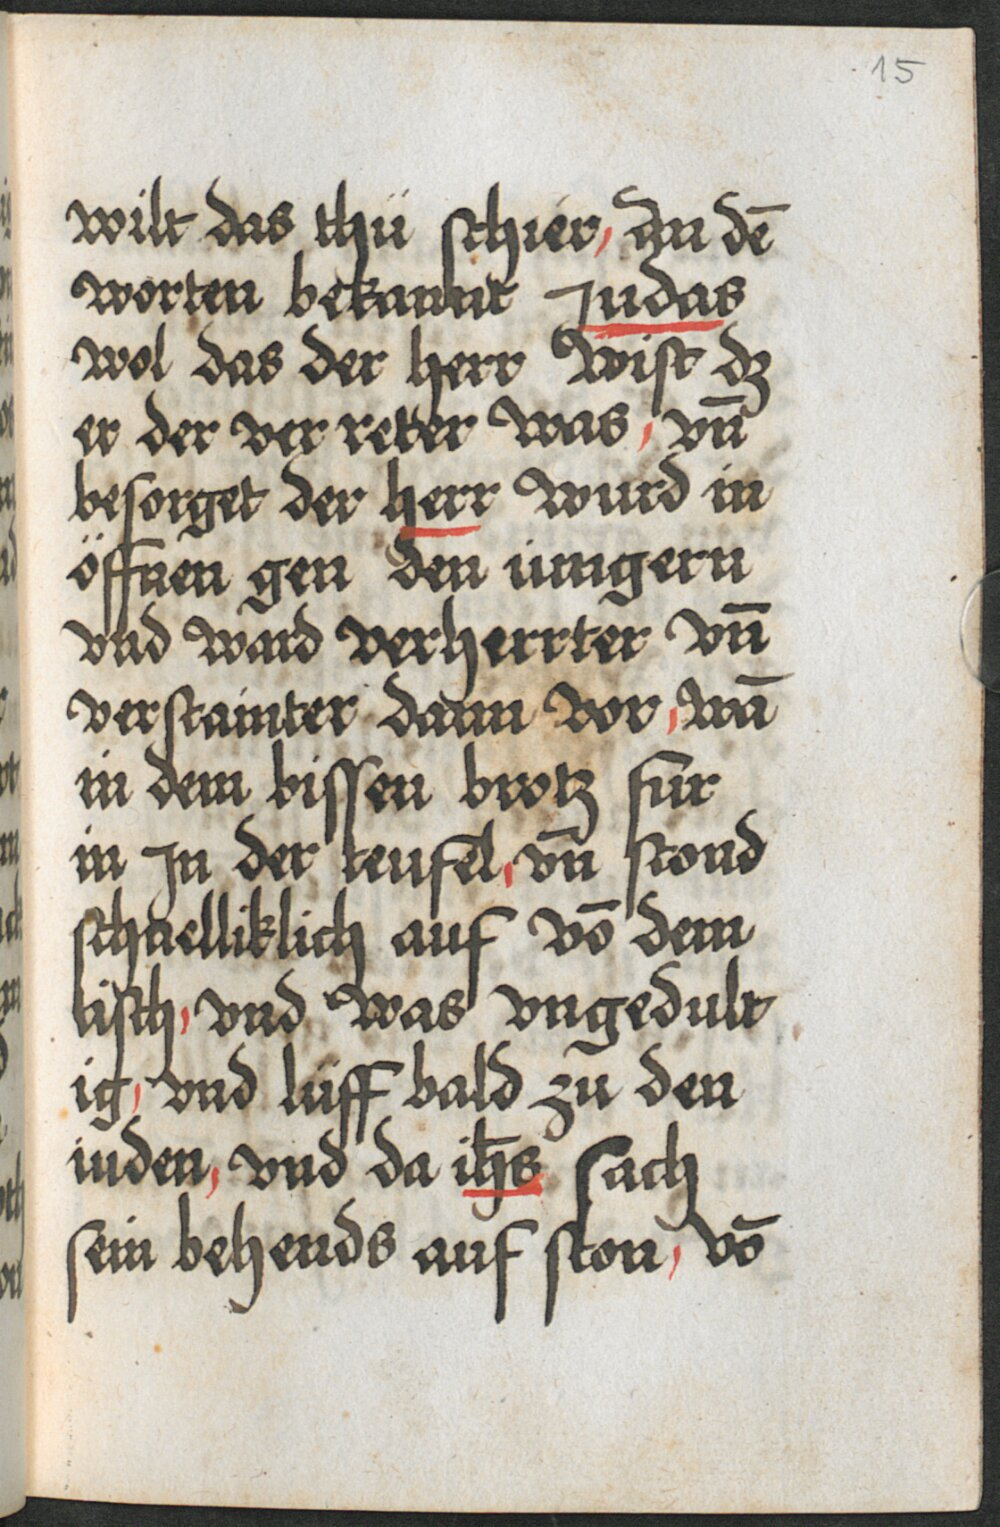 15
wilt das thü schier, An dē
worten bekannt Judas
wol das der herr wist dz
er der ver reter was, vn̄
besorget der herr wurd in
öffnen gen den iungern
vnd ward verherrter vn̄
verstainter dann vor, wā
in dem bissen brotz für
in Jn der teufel, vn̄ stond
schnelliklich auf vō dem
tisch, vnd was vngedult
ig, vnd lüff bald zü den
iuden, vnd da ih̄s sach
sein behends auf ston, vō